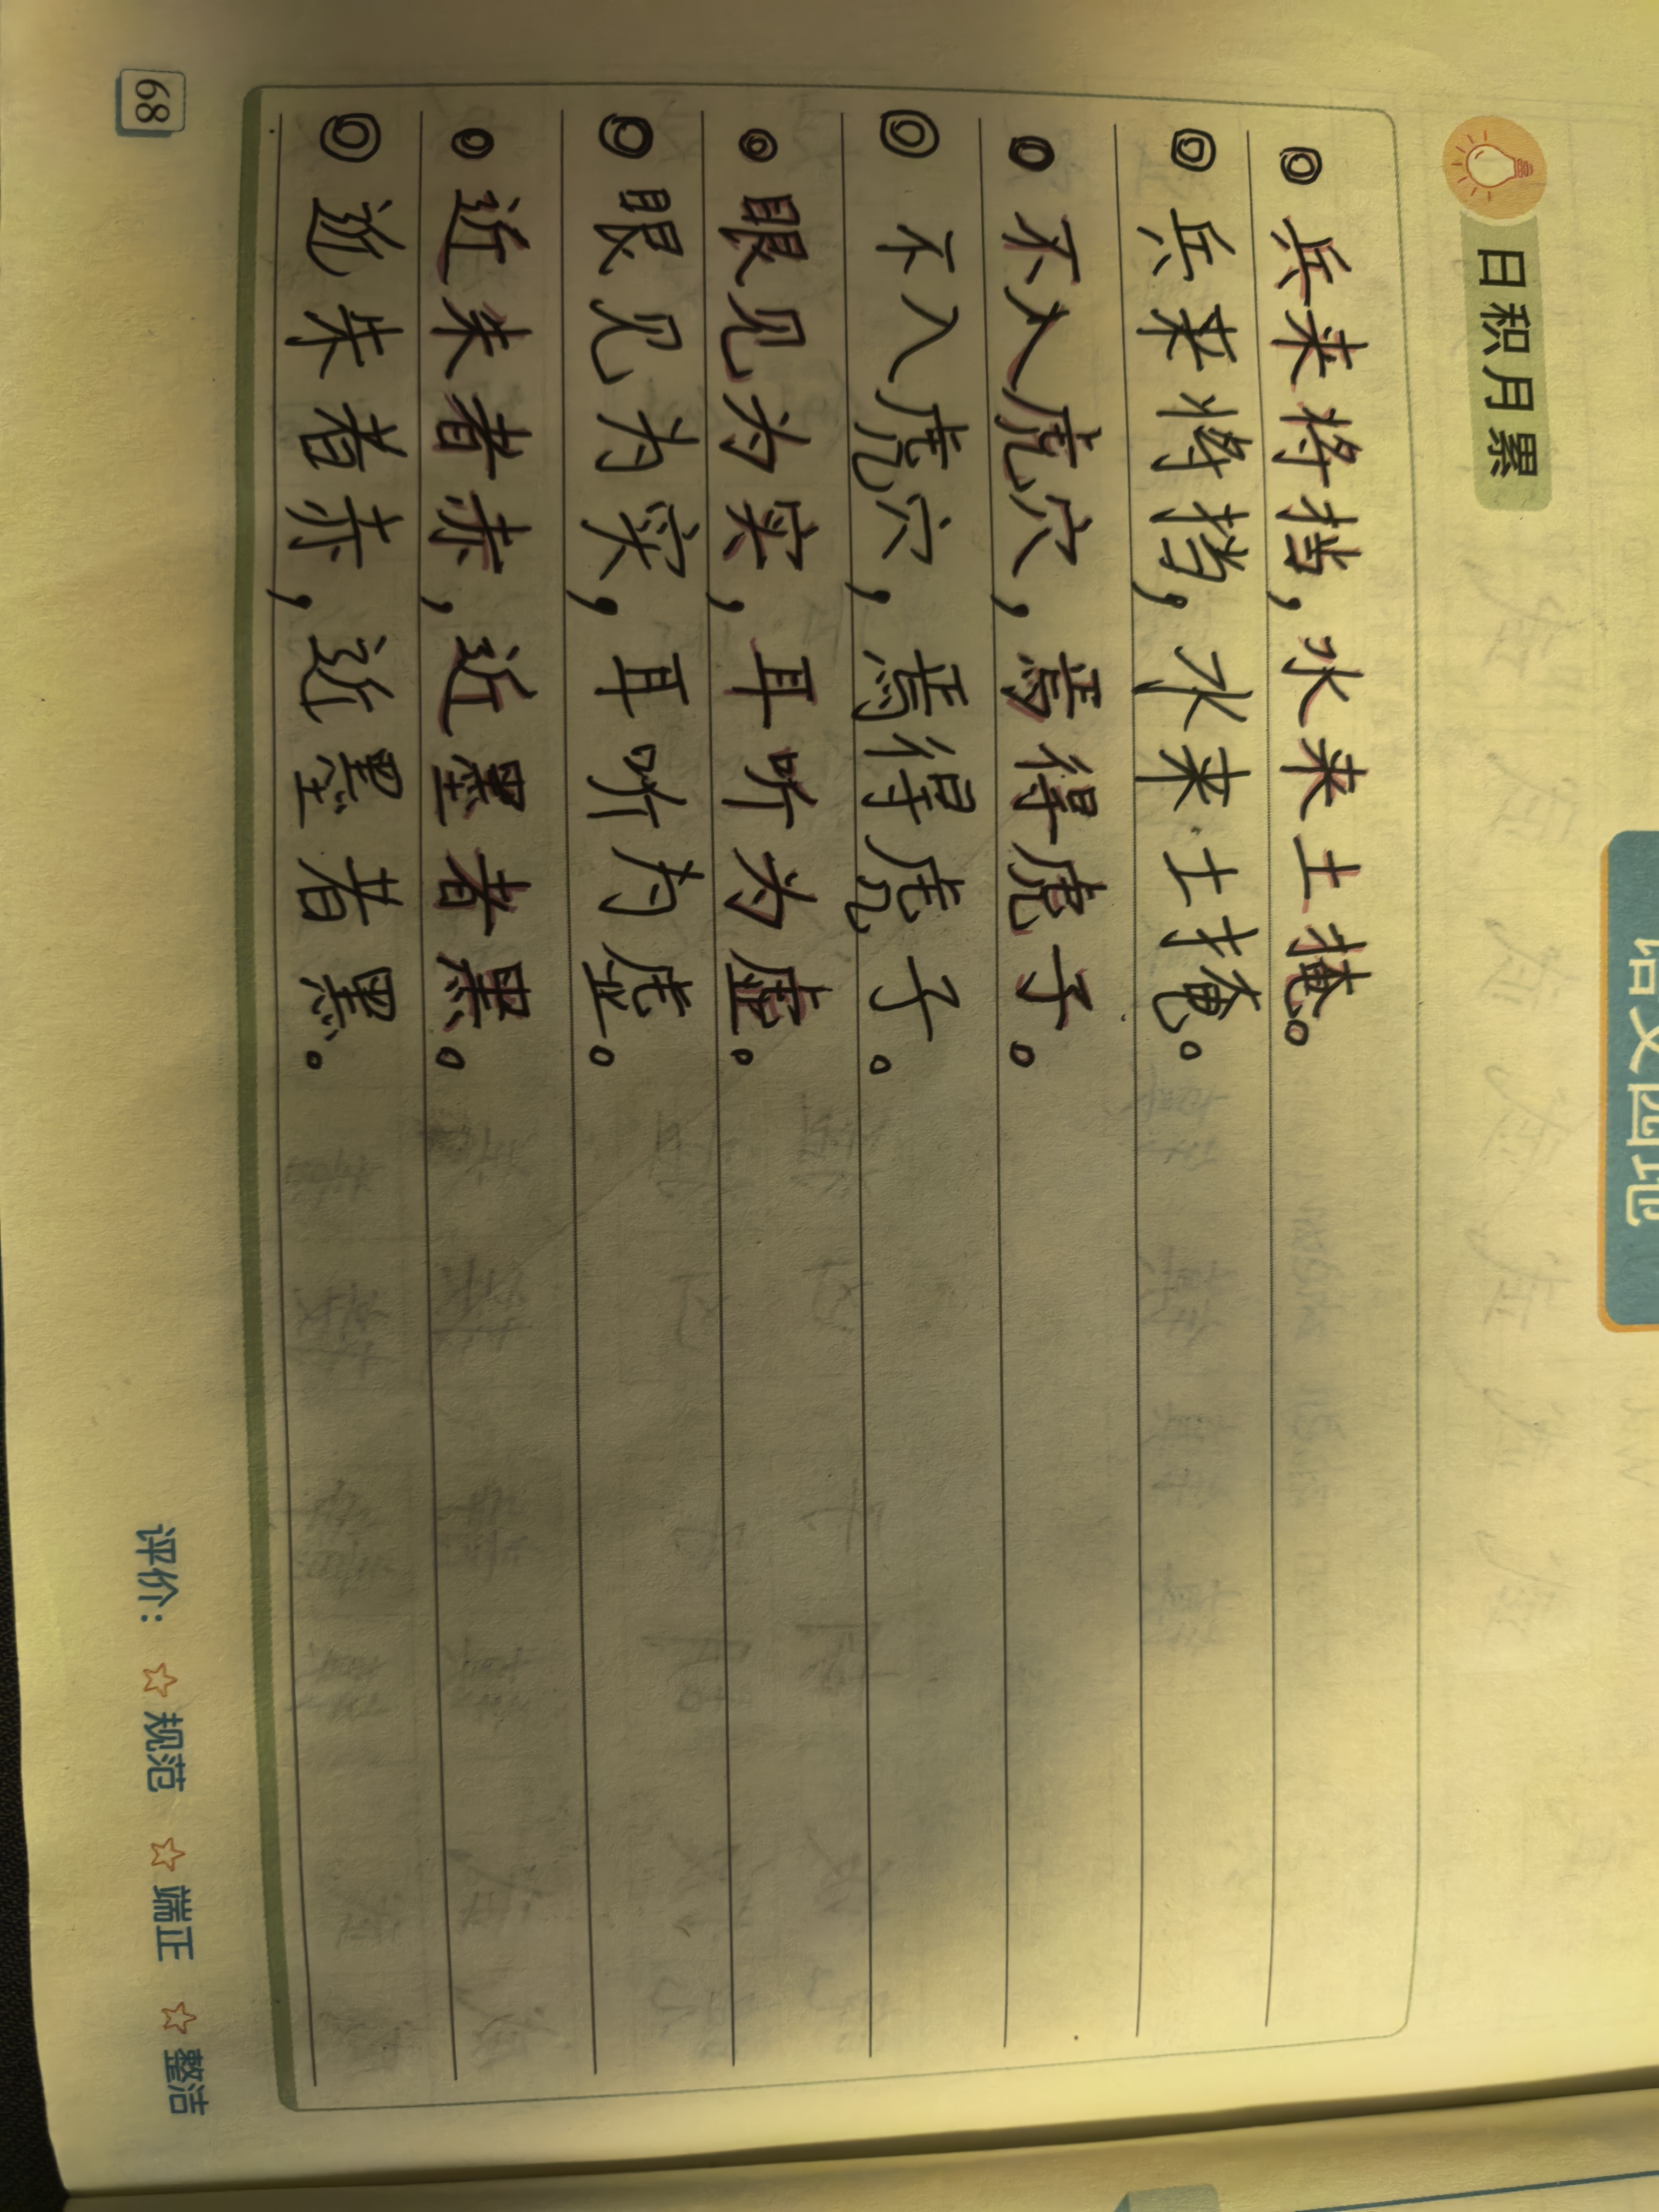 语文园地
日积月累
◎兵来将挡，水来土掩。
◎兵来将挡，水来土掩。
◎不入虎穴，焉得虎子。
◎不入虎穴，焉得虎子。
◎眼见为实，耳听为虚。
◎眼见为实，耳听为虚。
◎近朱者赤，近墨者黑。
◎近朱者赤，近墨者黑。
68 评价：☆规范 ☆端正 ☆整洁